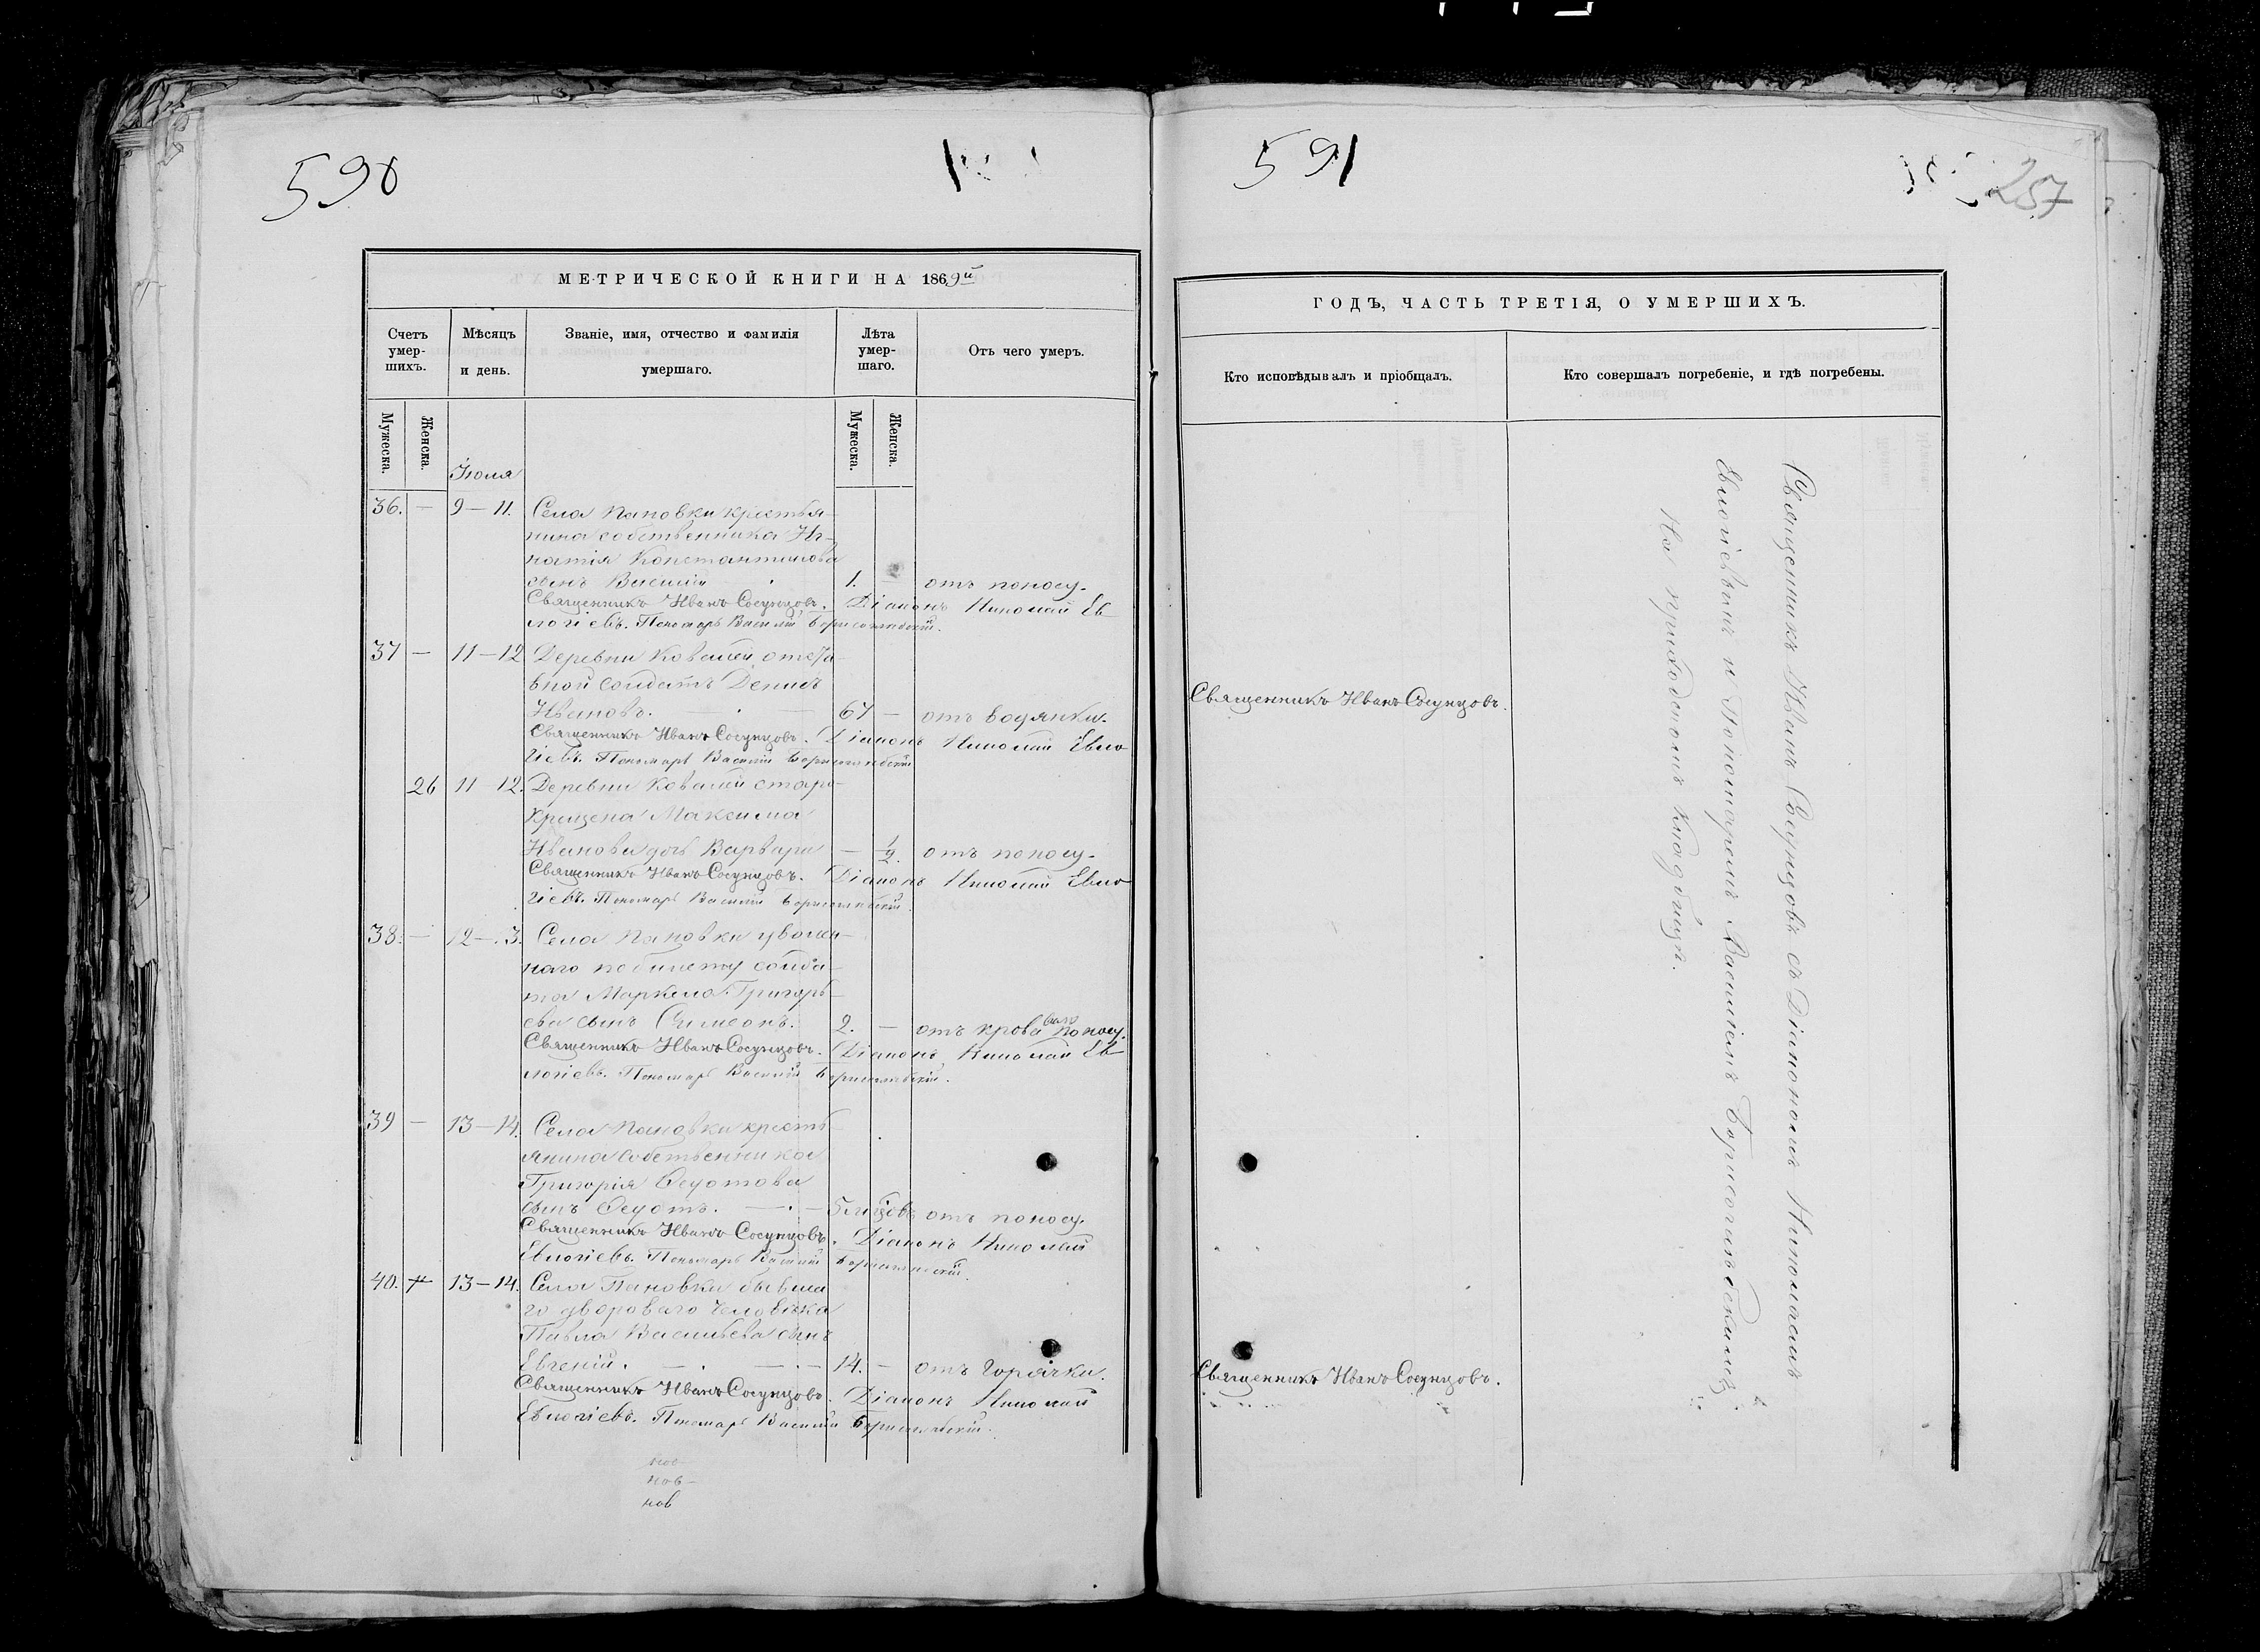 590
МЕТРИЧЕСКОЙ КНИГИ НА 1869й
Счетъ умер-шихъ.
Мѣсяцъ и день.
Званіе, имя, отчество и фамилія умершаго.
Лѣта умер-шаго.
Отъ чего умеръ.
Мужеска.
Женска.
Мужеска.
Женска.
Іюля
36. — 9 — 11. Села Пановки крестья-
нина собственника Иг-
натія Константинова
сынъ Василій 1. — отъ поносу.
Священникъ Иванъ Сосунцовъ. Діаконъ Николай Ев
логіевъ. Пономарь Василій Борисоглебскій.
37 — 11 — 12 Деревни Ковалей отста-
вной солдатъ Денисъ
Ивановъ. — 67 — отъ водянки.
Священникъ Иванъ Сосунцовъ. Діаконъ Николай Евло
гіевъ. Пономарь Василій Борисоглебскій
26 11 — 12. Деревни Ковалей старо-
крещена Максима
Иванова дочь Варвара — 1/2. отъ поносу.
Священникъ Иванъ Сосунцовъ. Діаконъ Николай Евло
гіевъ. Пономарь Василій Борисоглебскій.
38. — 12 — 13. Села Пановки уволен-
наго по билету солда-
та Маркела Григорь-
ева сынъ Симеонъ. 2. — отъ кроваваго поносу.
Священникъ Иванъ Сосунцовъ. Діаконъ Николай Ев
логіевъ. Пономарь Василій Борисоглебскій.
39 — 13 — 14. Села Пановки кресть-
янина собственника
Григорія Ѳедотова
сынъ Ѳедотъ. — 5 мѣсяцовъ отъ поносу.
Священникъ Иванъ Сосунцовъ. Діаконъ Николай
Евлогіевъ. Пономарь Василій Борисоглебскій.
40. — 13 — 14. Села Пановки бывша
го двороваго человѣка
Павла Васильева сынъ
Евгеній. — 14. — отъ горячки.
Священникъ Иванъ Сосунцовъ. Діаконъ Николай
Евлогіевъ. Пономарь Василій Борисоглебскій.
нов
нов
нов
591
257
ГОДЪ, ЧАСТЬ ТРЕТІЯ, О УМЕРШИХЪ.
Кто исповѣдывалъ и пріобщалъ.
Кто совершалъ погребеніе, и гдѣ погребены.
Священникъ Иванъ Сосунцовъ.
Священникъ Иванъ Сосунцовъ.
Священникъ Иванъ Сосунцовъ съ Діакономъ Николаемъ
Евлогіевымъ и Пономаремъ Василіемъ Борисоглебскимъ
На приходскомъ кладбищѣ.